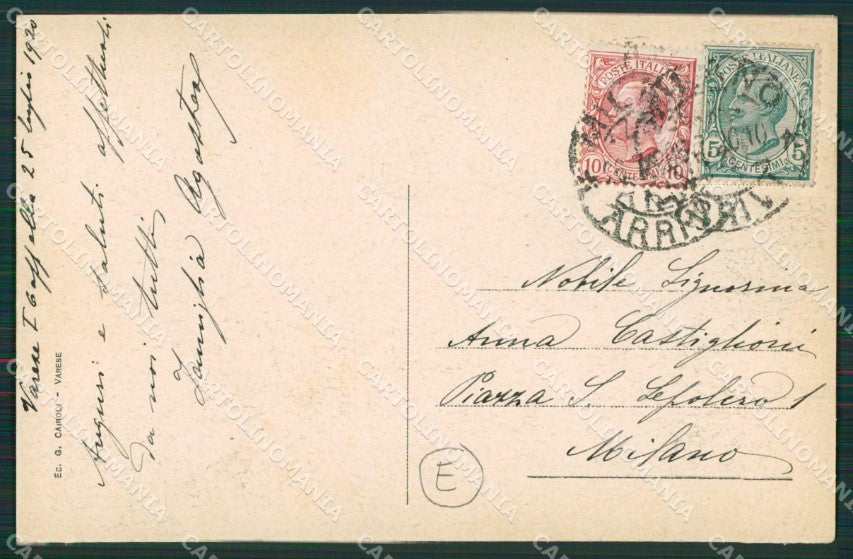 Varese 25 luglio 1920
Auguri e saluti affettuosi
da noi tutti
Famiglia Agostoni
Ed. G. Cairoli - Varese
POSTE ITALIANE
10 CENTESIMI 10
POSTE ITALIANE
5 CENTESIMI 5
MILANO
ARRIVI
ARRIVI
Nobile Signorina
Anna Castiglioni
Piazza S. Sepolcro 1
Milano
E
CARTOLINOMANIA